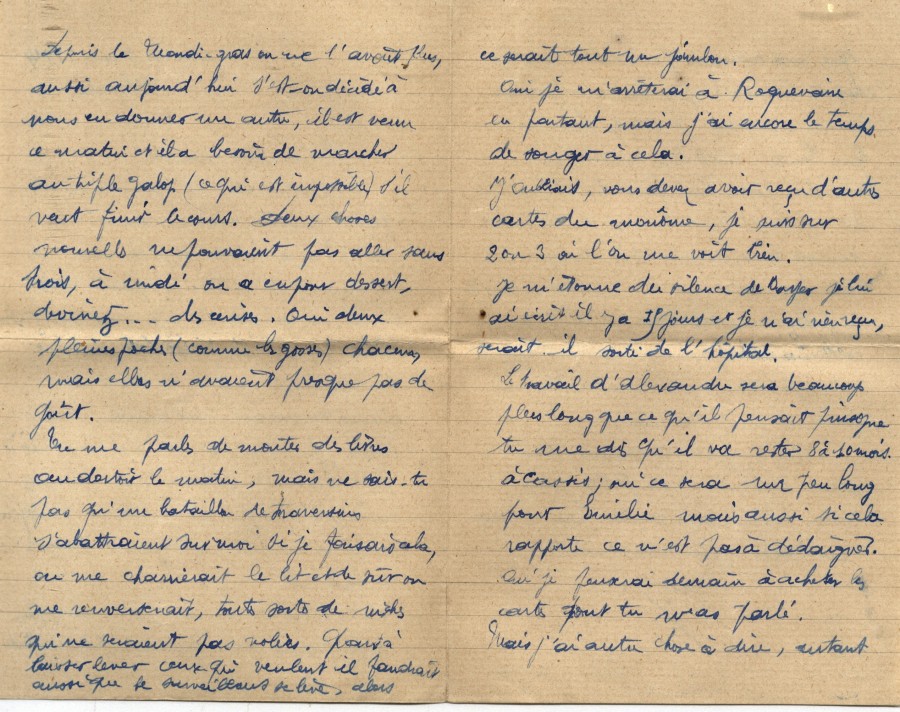 Depuis le Mardi-gras on ne l'avait plus,
aussi aujourd'hui s'est-on décidé à
nous en donner un autre, il est venu
ce matin et il a besoin de marcher
au triple galop (ce qui est impossible) s'il
veut finir le cours. Deux choses
nouvelles ne pouvaient pas aller sans
trois, à midi on a eu pour dessert,
devinez... des cerises. Oui deux
pleines poches (comme les gosses) chacun,
mais elles n'avaient presque pas de
goût.
Tu me parles de monter des livres
au dortoir le matin, mais ne sais-tu
pas qu'une bataillon de traversins
s'abattraient sur moi si je faisais cela,
on me charrierait le lit et de sûr on
me renverserait, toutes sortes de
qui ne seraient pas volées. Quand à
laisser lever ceux qui veulent il faudrait
aussi que le surveillant se lève, alors
ce serait tout un
Oui je m'arrêterai à Roquevaire
en partant, mais j'ai encore le temps
de songer à cela.
J'oubliais, vous devez avoir reçu d'autres
cartes du monôme, je suis sur
2 ou 3 où l'on me voit bien.
Je m'étonne du silence de je lui
ai écrit il y a 15 jours et je n'ai rien reçu,
serait-il sorti de l'hôpital.
Le travail d'Alexandre sera beaucoup
plus long que ce qu'il pensait puisque
tu me dis qu'il va rester 8 à 10 mois
à Cassis; oui ce sera un peu long
pour Emilie mais aussi si cela
rapporte ce n'est pas à dédaigner.
Oui je penserai demain à acheter les
cartes dont tu m'as parlé.
Mais j'ai autre chose à dire, autant